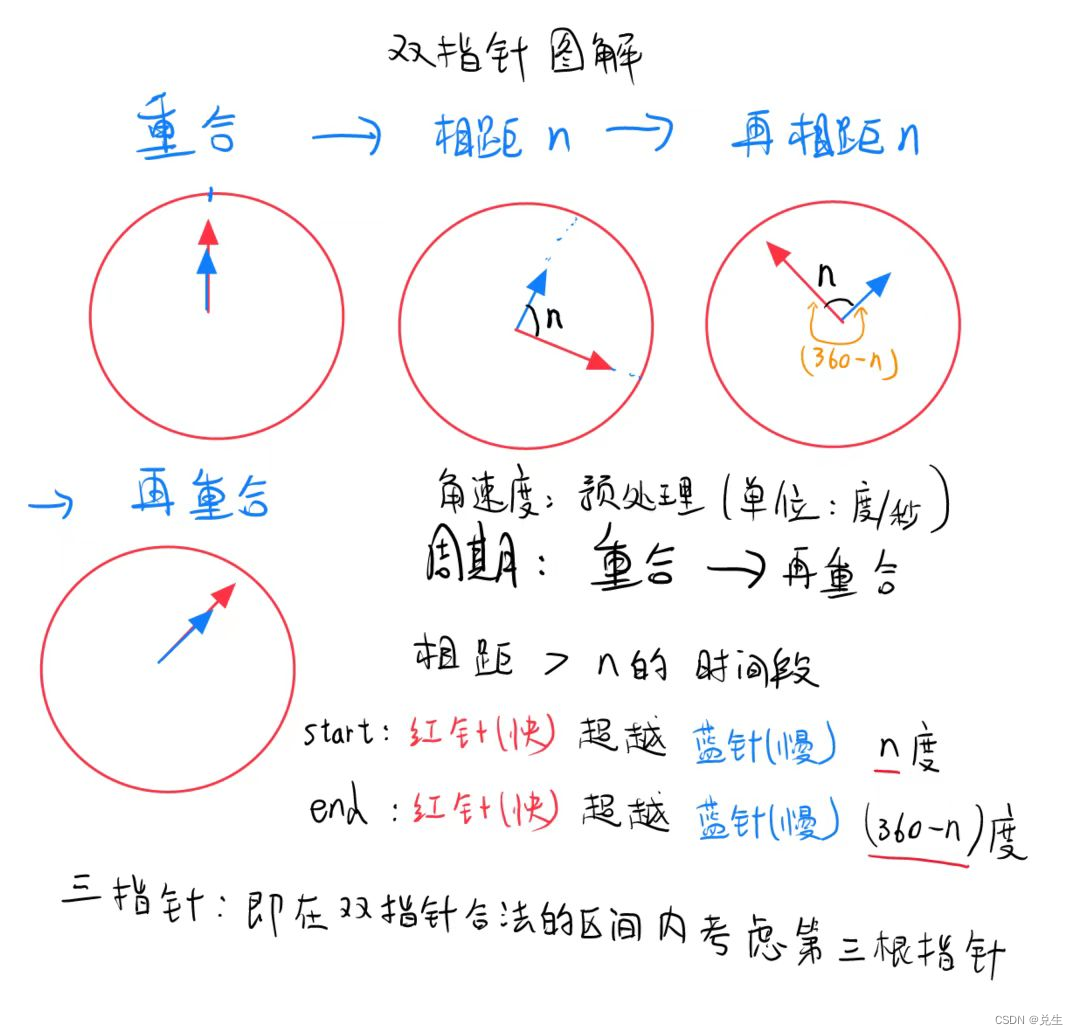 双指针图解
重合 → 相距n → 再相距n
n
n
(360-n)
→ 再重合
角速度：预处理(单位：度/秒)
周期：重合 → 再重合
相距 > n的时间段
start: 红针(快) 超越 蓝针(慢) n度
end: 红针(快) 超越 蓝针(慢) (360-n)度
三指针：即在双指针合法的区间内考虑第三根指针
CSDN @兑生